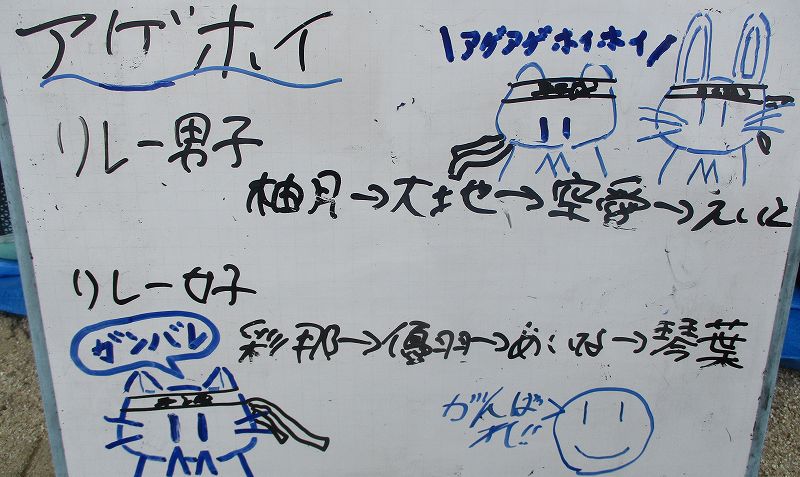 アゲホイ
\アゲアゲホイホイ/
リレー男子
柚月→大地→空愛→えいと
リレー女子
ガンバレ
彩那→優羽→めいな→琴葉
がんば
れ!!